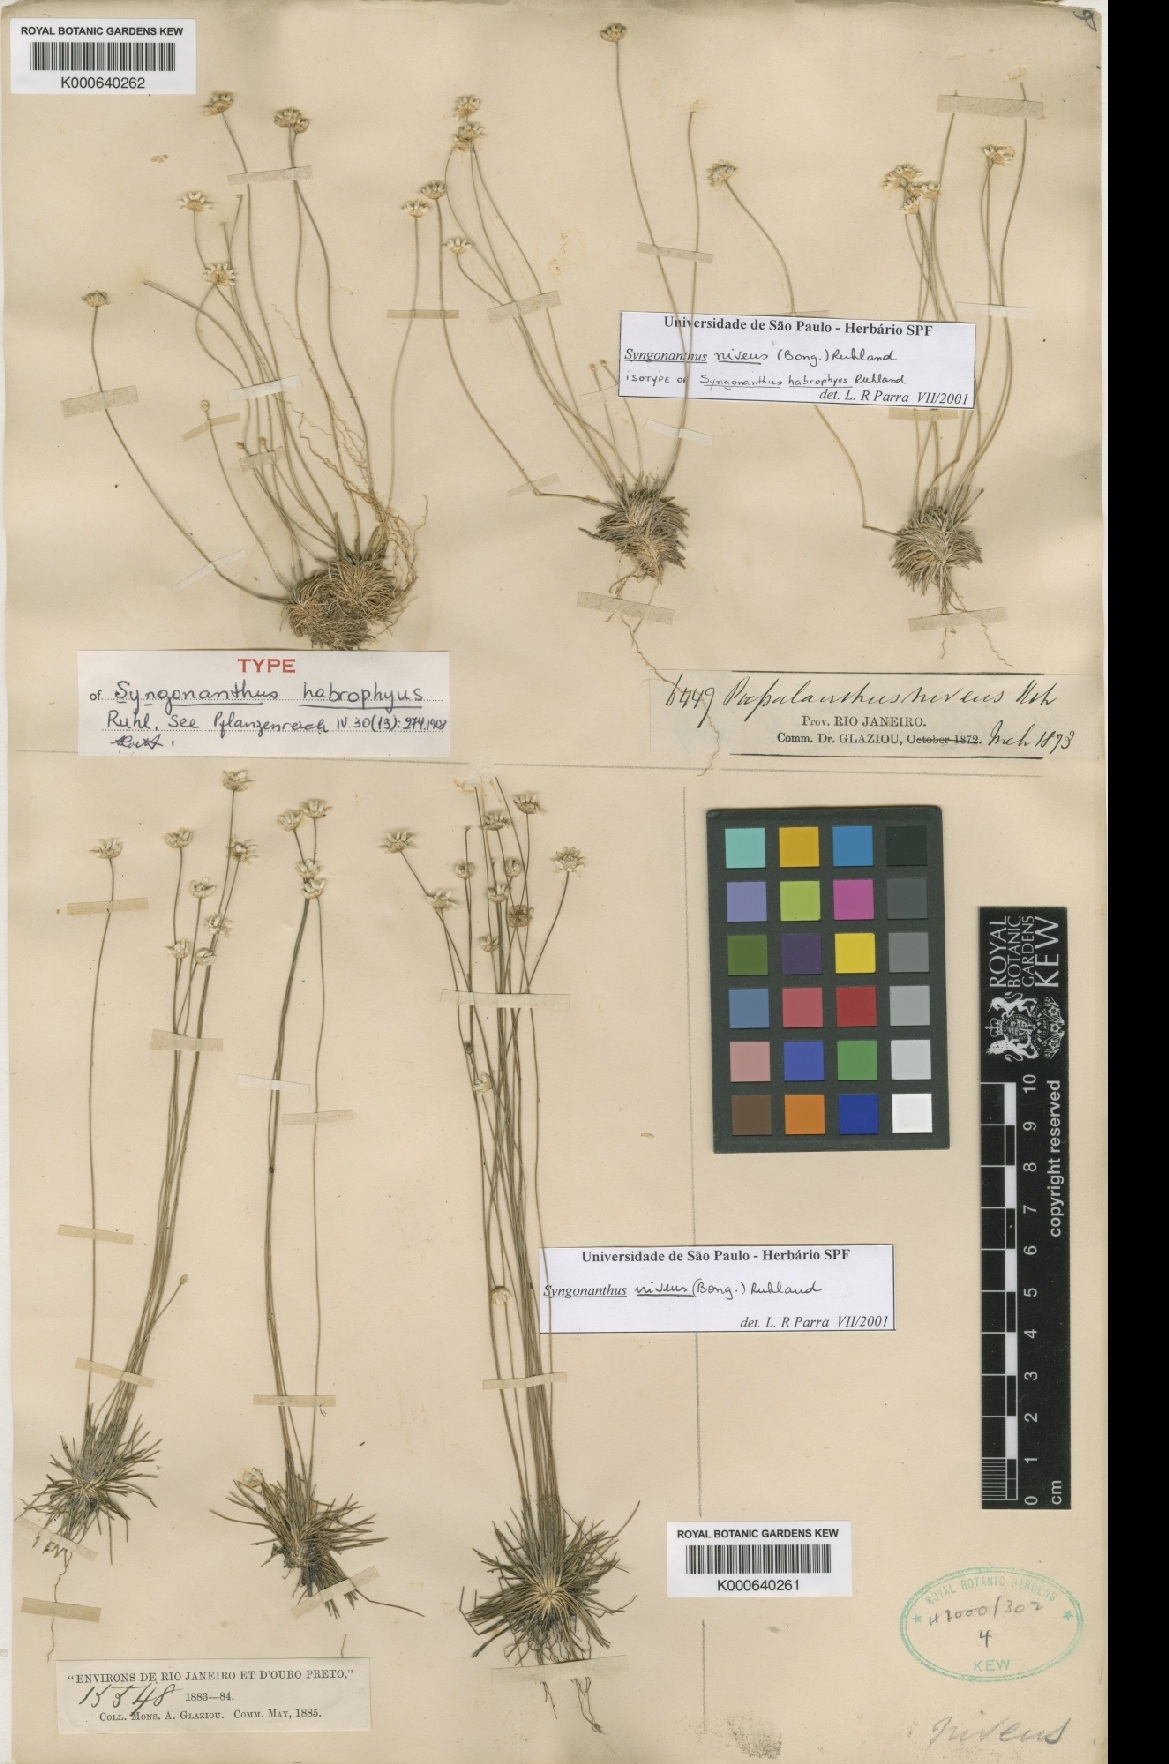 ROYAL BOTANIC GARDENS KEW
K000640262
Universidade de São Paulo - Herbário SPF
Syngonanthus niveus (Bong.) Ruhland
ISOTYPE OF Syngonanthus habrophyus Ruhland
det. L. R Parra VII/2001
TYPE
OF Syngonanthus habrophyus
Ruhl. See Pflanzenreich IV 30(13): 274, 1903
6449 Paepalanthus niveus
Prov. RIO JANEIRO.
Comm. Dr. GLAZIOU, October 1872. Mch 1873
ROYAL
BOTANIC
GARDENS
KEW
0 1 2 3 4 5 6 7 8 9 10
cm
copyright reserved
Universidade de São Paulo - Herbário SPF
Syngonanthus niveus (Bong.) Ruhland
det. L. R Parra VII/2001
ROYAL BOTANIC GARDENS KEW
K000640261
ROYAL BOTANIC GARDENS
H2000/302
4
KEW
"ENVIRONS DE RIO JANEIRO ET D'OURO PRETO,"
15548 1883—84.
COLL. MONS. A. GLAZIOU. COMM. MAY, 1885.
niveus